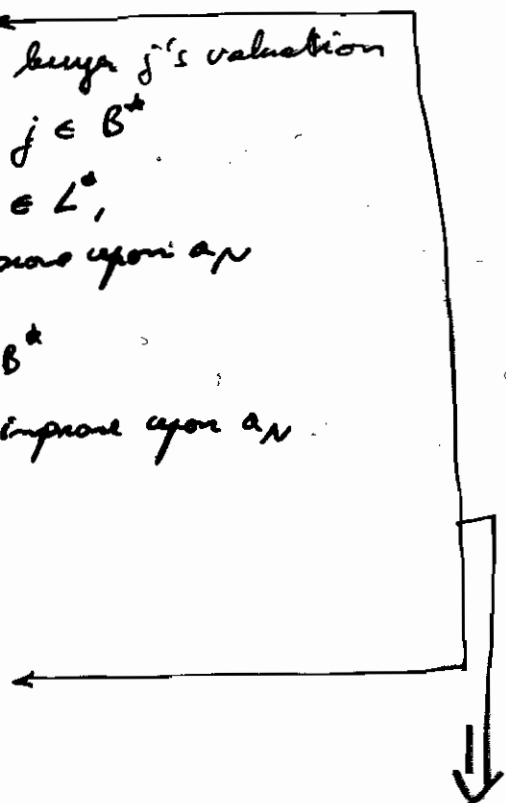 buyer j's valuation
j ∈ B*
∈ L*,
upon a_N
B*
improve upon a_N